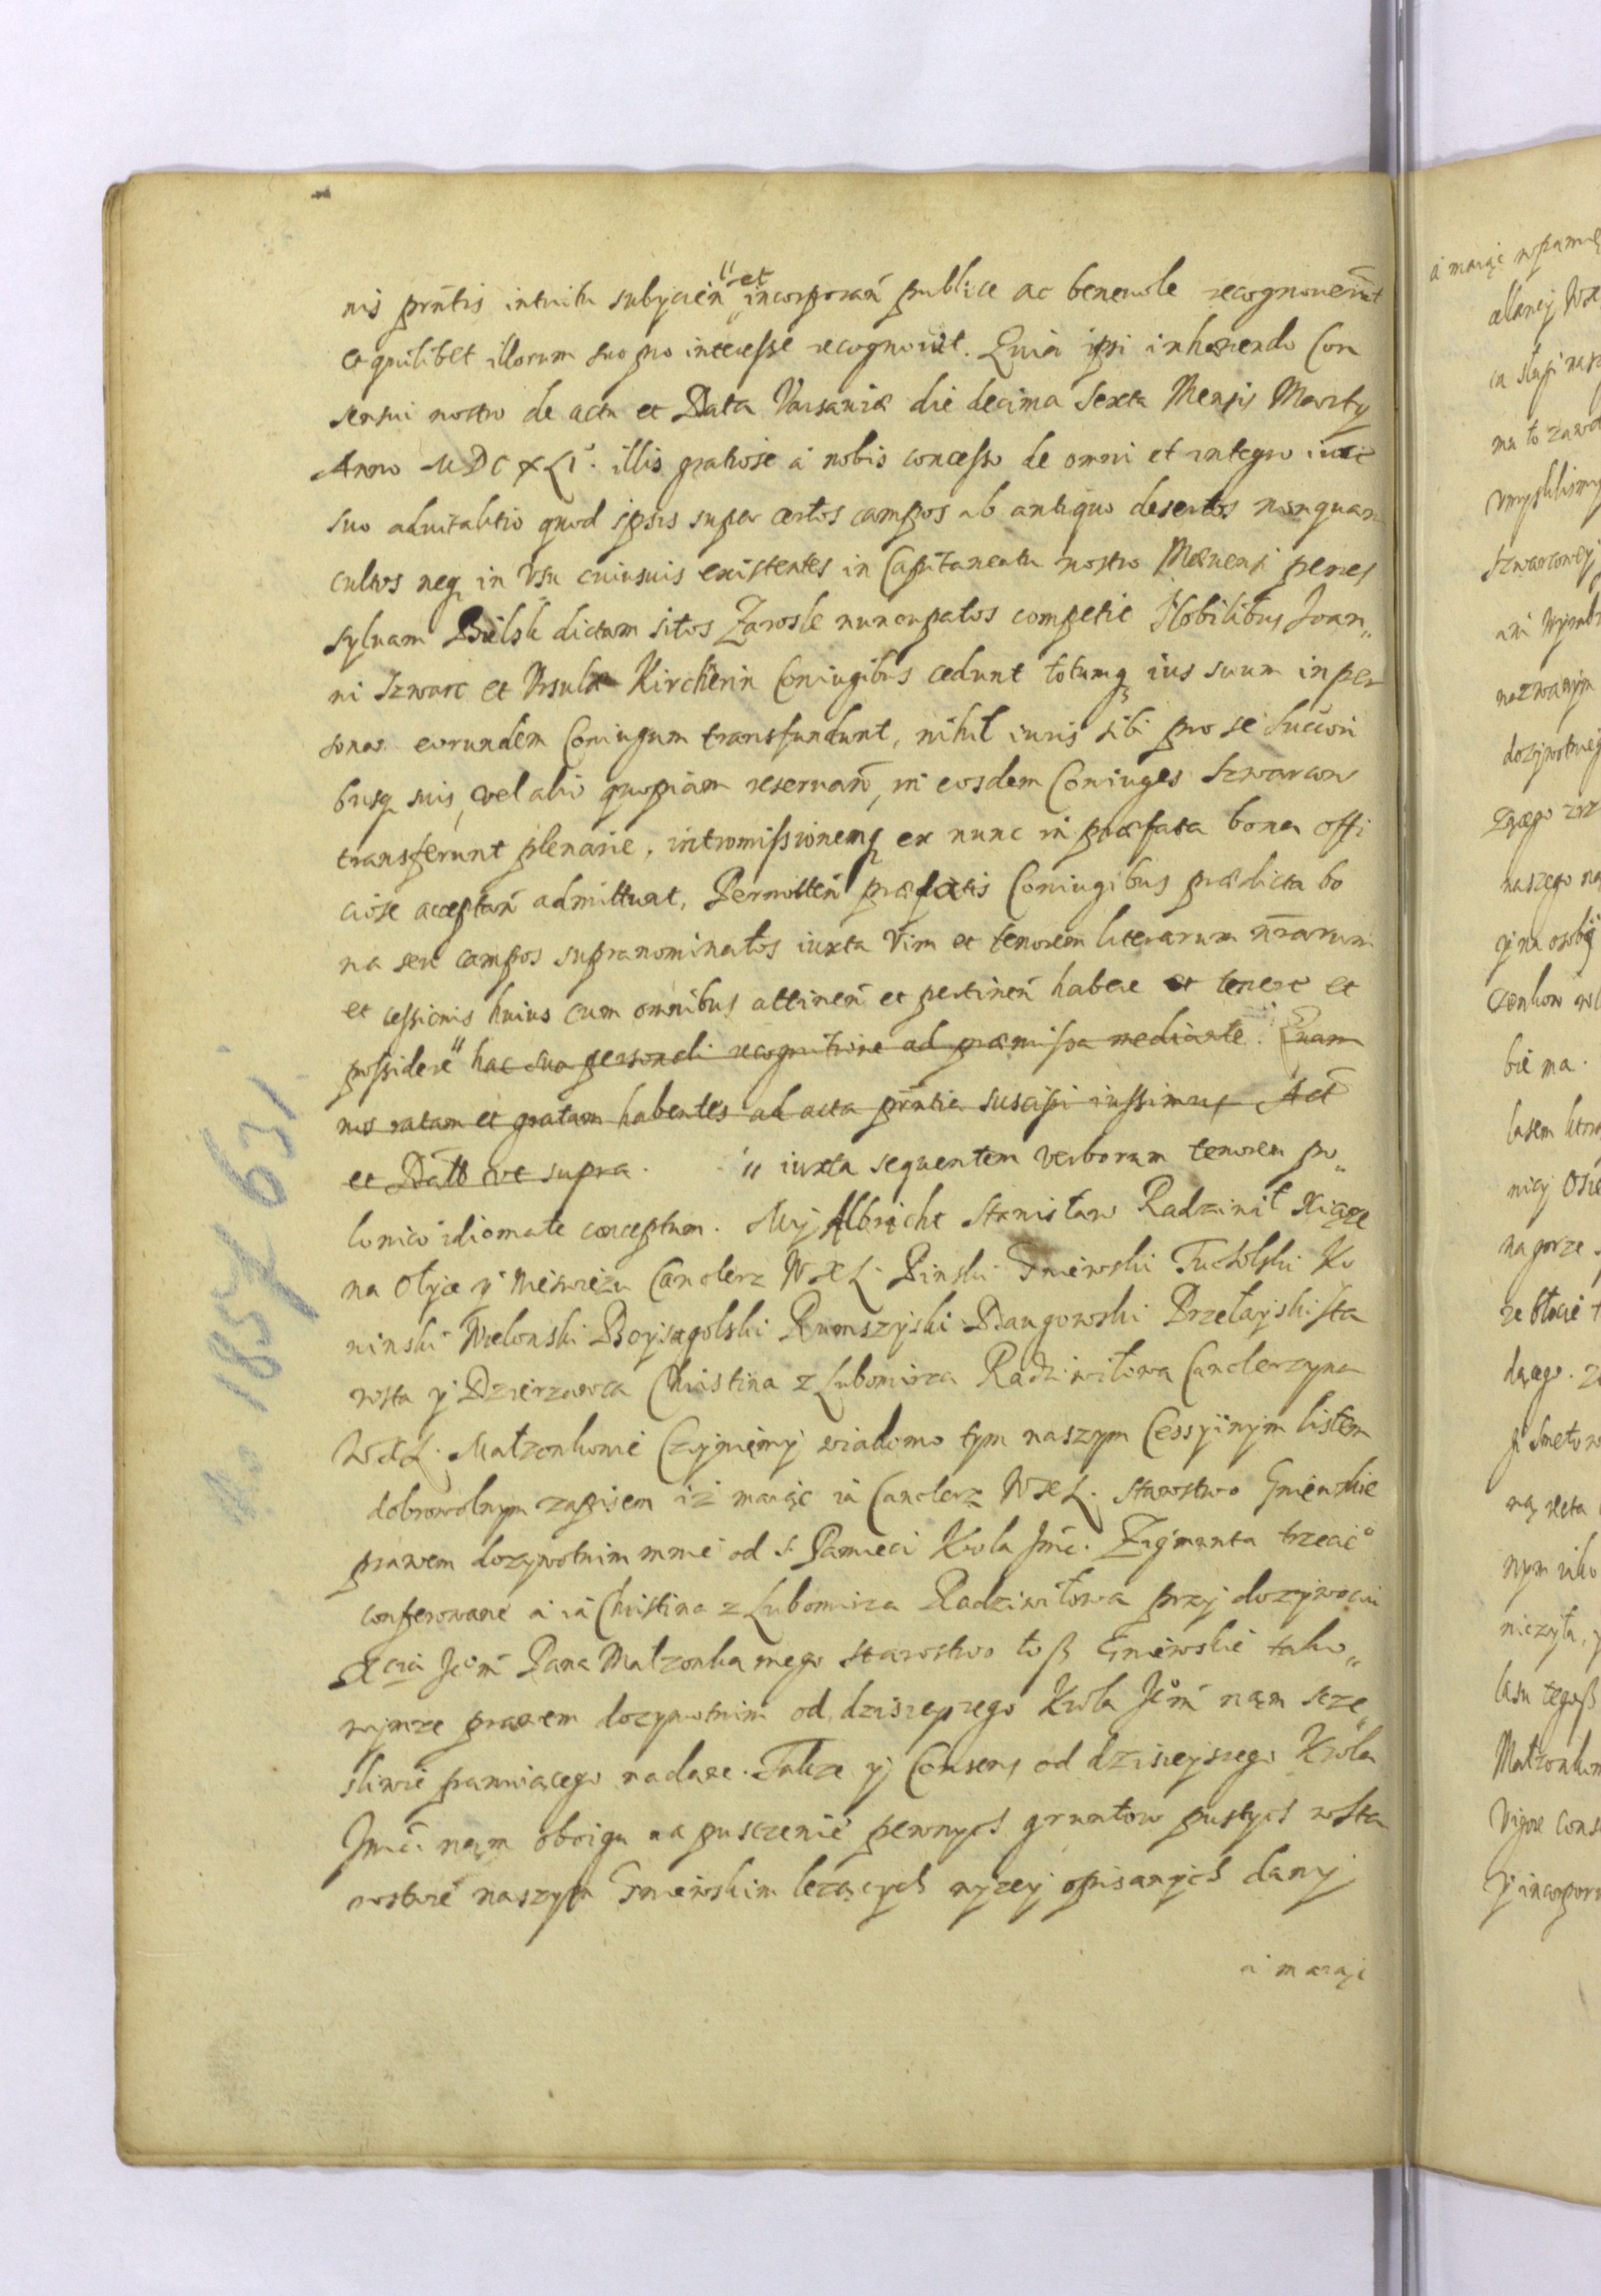 nis prn̄tis intuitu subycien̄ " et incorporan̄ publice ac beneuole recognouerūt
et quilibet illorum suo pro interesse recognouit. Quia ipsi inhærendo Con
sensui nostro de actu et Data Varsauiæ die decima sexta Mensis Marty
Anno MDCXLI. illis gratiose a nobis concesso de omni et integro iure
suo aduitalitio quod ipsis super certos campos ab antiquo desertos nunquam
cultos neq in Vsu cuiusuis existentes in Capitaneatu nostro Mæuensi penes
syluam Bielsk dictam sitos Zarosle nuncupatos competit Nobilibus Joan„
ni Szwarc et Vrsulæ Kircherin Coniugibus cedunt totumq ius suum in per
sonas eorundem Coniugum transfundunt, nihil iuris sibi pro se succori
busq suis, vel alio quopiam reseruan̄, in eosdem Coniuges Szwarcow
transferunt plenarie, intromissionemq ex nunc in præfata bona offi
ciose acceptan̄ admittunt, Permitten̄ præfatis Coniugibus prædicta bo
na seu campos supranominatos iuxta Vim et tenorem literarum nr̄arum
et cessionis huius cum omnibus attinen̄ et pertinen̄ habere et tenere et
possidere " hac sua personali recognitione ad præmissa mediante. Quam
nos ratam et gratam habentes ad acta prn̄tia suscipi iussimus Act
et Datt vt supra. " iuxta sequentem verborum tenorem po„
lonico idiomate conceptum. My Albricht Stanisław Radziwił Xiąze
na Olyce y Nieswiezu Canclerz WXL. Pinski Gniewski Tucholski Ko
ninski Wielonski Boysagolski Rumszyski Daugowski Przełayski sta
rosta y Dzierzawca Christina z Lubomirza Radziwiłowa Canclerzyna
WXL. Małzonkowie Czyniemy wiadomo tym naszym Cessyinym listem
dobrowolnym zapisem iż maiąc ia Canclerz WXL. starostwo Gniewskie
prawem dozywotnim mnie od S. Pamieci Krola Jmci. Zygmunta trzeciº
conferowane a ia Christina z Lubomirza Radziwiłowa przy dozywociu
Xcia Jeom Pana Małzonka mego starostwo toß Gniewskie tako„
wymze prawem dozywotnim od dzisieyszego Krola Jeom nam scze
sliwie panuiącego nadane. Takze y Consens od dzisieyszego Krola
Jmci. nam oboigu na pusczenie pewnych gruntow pustych w sta
rostwie naszym Gniewskim lezących nyzey opisanych dany
a maiąc
No 1857 631.